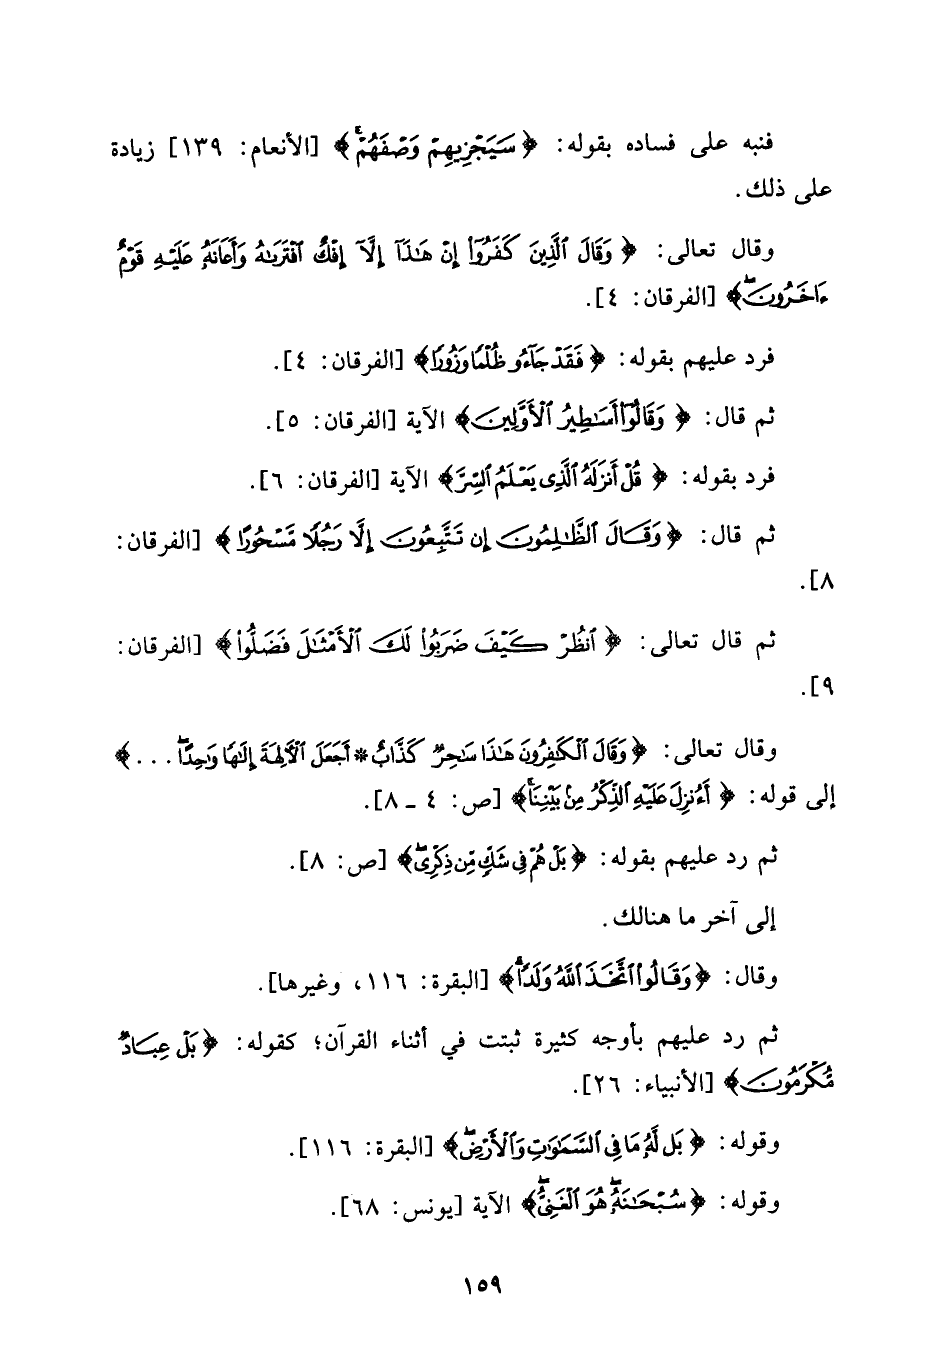 فنبه على فساده بقوله: ﴿ سَيَجْزِيهِمْ وَصْفَهُمْ ۚ﴾ [الأنعام: ١٣٩] زيادة
على ذلك.
وقال تعالى: ﴿ وَقَالَ ٱلَّذِينَ كَفَرُوٓا۟ إِنْ هَـٰذَآ إِلَّآ إِفْكٌ ٱفْتَرَىٰهُ وَأَعَانَهُۥ عَلَيْهِ قَوْمٌ
ءَاخَرُونَ ۖ﴾ [الفرقان: ٤].
فرد عليهم بقوله: ﴿ فَقَدْ جَآءُو ظُلْمًا وَزُورًا﴾ [الفرقان: ٤].
ثم قال: ﴿ وَقَالُوٓا۟ أَسَـٰطِيرُ ٱلْأَوَّلِينَ﴾ الآية [الفرقان: ٥].
فرد بقوله: ﴿ قُلْ أَنزَلَهُ ٱلَّذِى يَعْلَمُ ٱلسِّرَّ﴾ الآية [الفرقان: ٦].
ثم قال: ﴿ وَقَالَ ٱلظَّـٰلِمُونَ إِن تَتَّبِعُونَ إِلَّا رَجُلًا مَّسْحُورًا ﴾ [الفرقان:
٨].
ثم قال تعالى: ﴿ ٱنظُرْ كَيْفَ ضَرَبُوا۟ لَكَ ٱلْأَمْثَـٰلَ فَضَلُّوا۟ ﴾ [الفرقان:
٩].
وقال تعالى: ﴿ وَقَالَ ٱلْكَـٰفِرُونَ هَـٰذَا سَـٰحِرٌ كَذَّابٌ * أَجَعَلَ ٱلْـَٔالِهَةَ إِلَـٰهًا وَٰحِدًا ۖ . . . ﴾
إلى قوله: ﴿ أَءُنزِلَ عَلَيْهِ ٱلذِّكْرُ مِنۢ بَيْنِنَا ۚ﴾ [ص: ٤ ـ ٨].
ثم رد عليهم بقوله: ﴿ بَلْ هُمْ فِى شَكٍّ مِّن ذِكْرِى ۖ﴾ [ص: ٨].
إلى آخر ما هنالك.
وقال: ﴿ وَقَالُوا۟ ٱتَّخَذَ ٱللَّهُ وَلَدًا ۗ﴾ [البقرة: ١١٦، وغيرها].
ثم رد عليهم بأوجه كثيرة ثبتت في أثناء القرآن؛ كقوله: ﴿ بَلْ عِبَادٌ
مُّكْرَمُونَ﴾ [الأنبياء: ٢٦].
وقوله: ﴿ بَل لَّهُۥ مَا فِى ٱلسَّمَـٰوَٰتِ وَٱلْأَرْضِ ۖ﴾ [البقرة: ١١٦].
وقوله: ﴿ سُبْحَـٰنَهُۥ ۖ هُوَ ٱلْغَنِىُّ ۖ﴾ الآية [يونس: ٦٨].
١٥٩